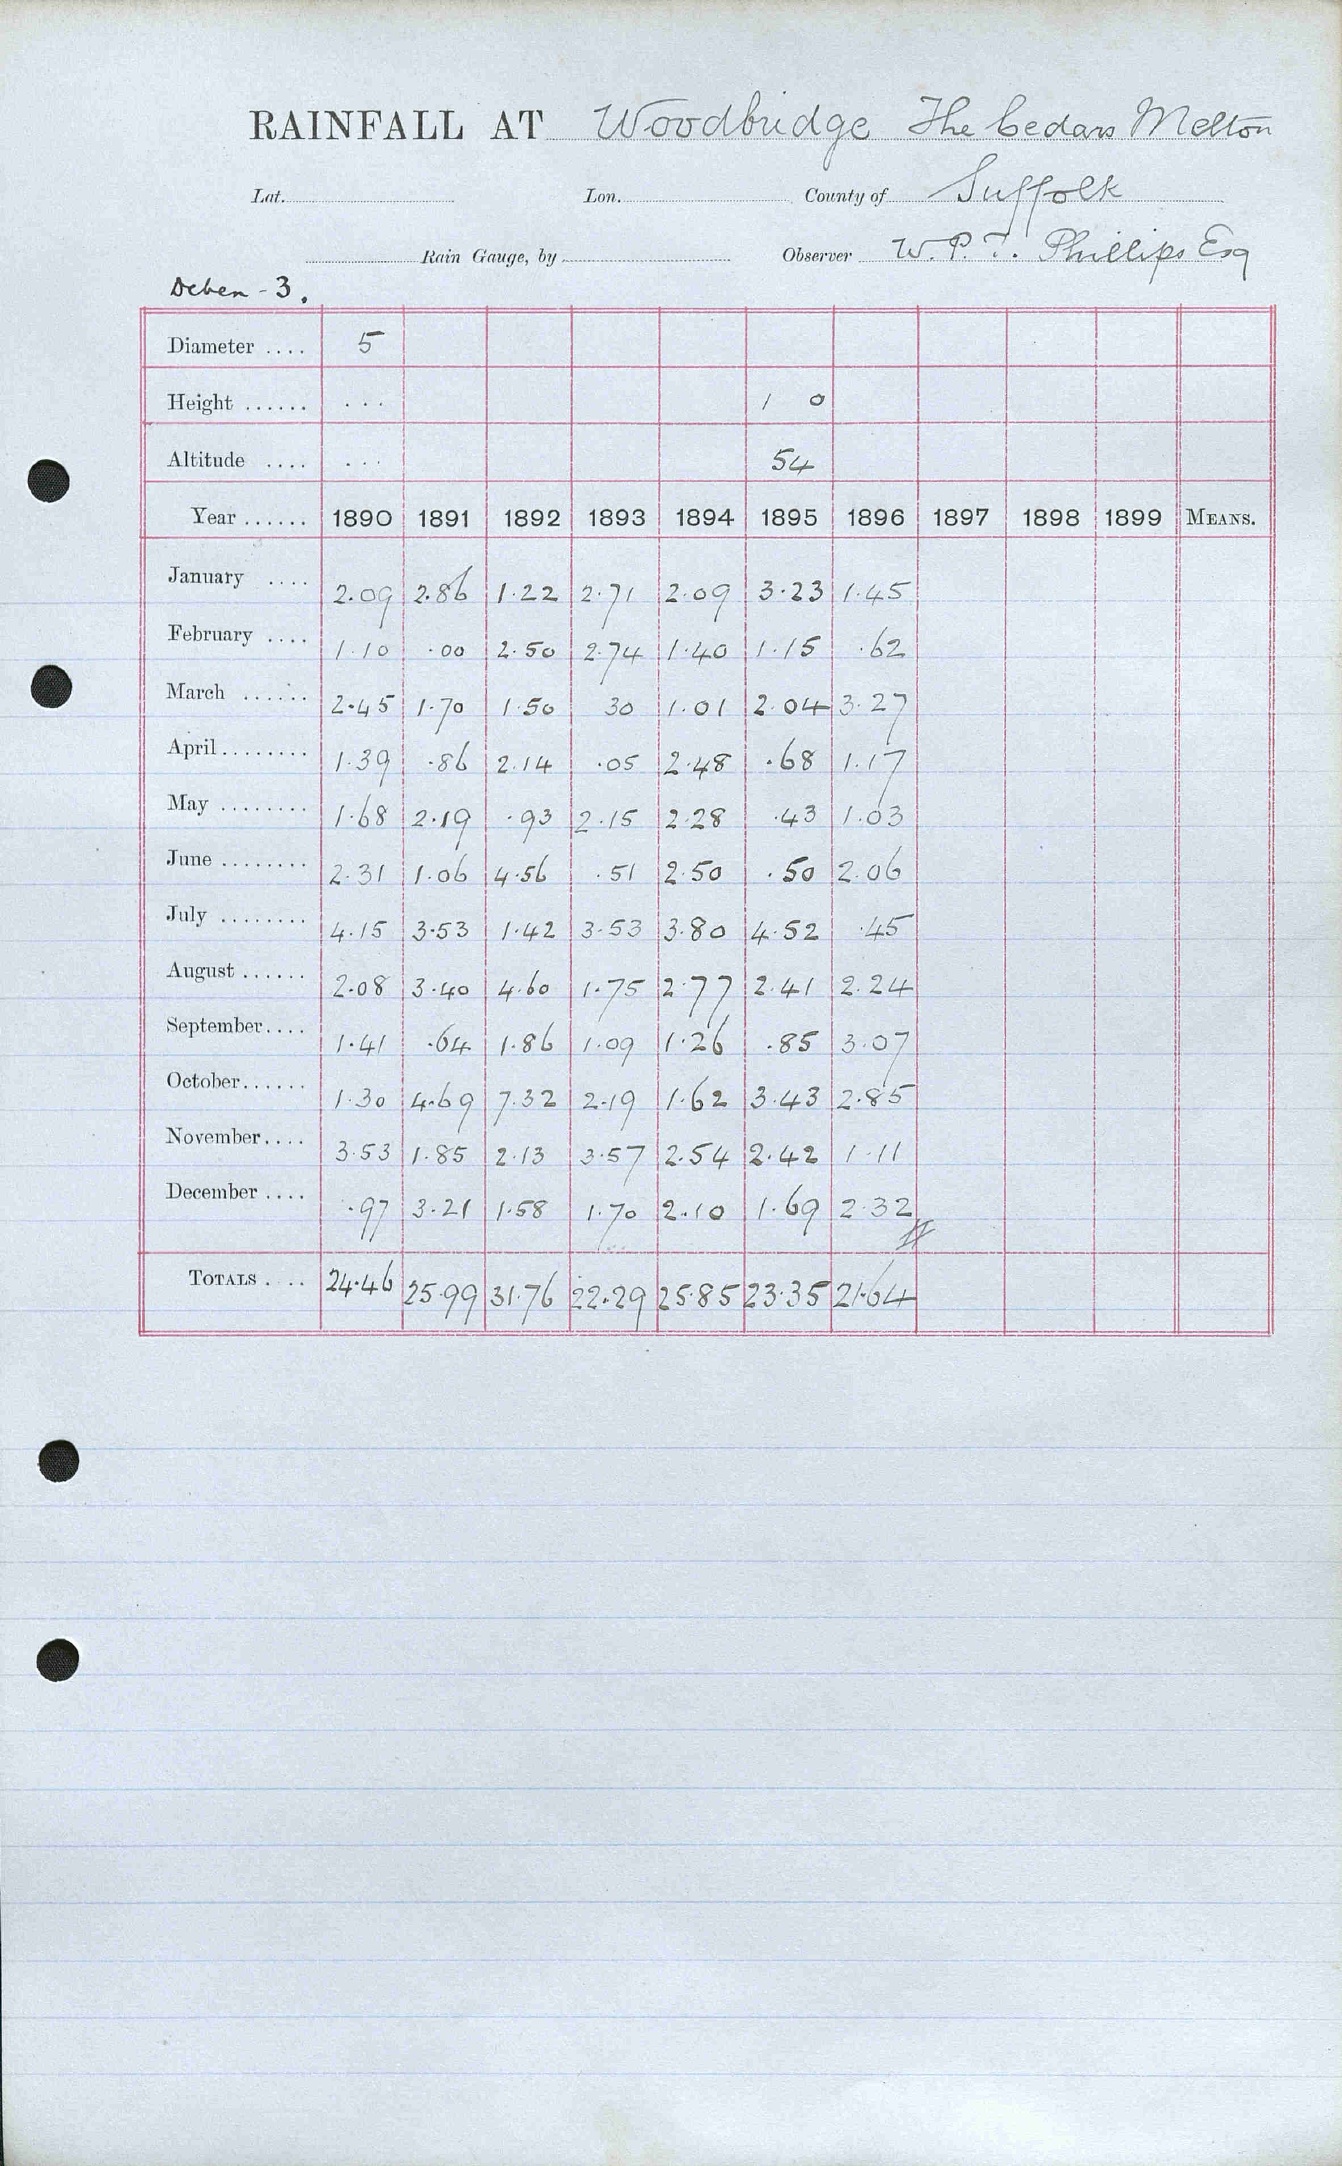 RAINFALL AT Woodbridge The Cedars Melton
Lat. Lon. County of Suffolk
Rain Gauge, by Observer W. P. T. Phillips Esq
Deben - 3.
Diameter .... 5
Height ...... ... 1 0
Altitude .... ... 54
Year ...... 1890 1891 1892 1893 1894 1895 1896 1897 1898 1899 MEANS.
January .... 2.09 2.86 1.22 2.71 2.09 3.23 1.45
February .... 1.10 .00 2.50 2.74 1.40 1.15 .62
March ...... 2.45 1.70 1.50 30 1.01 2.04 3.27
April ........ 1.39 .86 2.14 .05 2.48 .68 1.17
May ........ 1.68 2.19 .93 2.15 2.28 .43 1.03
June ........ 2.31 1.06 4.56 .51 2.50 .50 2.06
July ........ 4.15 3.53 1.42 3.53 3.80 4.52 .45
August ...... 2.08 3.40 4.60 1.75 2.77 2.41 2.24
September.... 1.41 .64 1.86 1.09 1.26 .85 3.07
October...... 1.30 4.69 7.32 2.19 1.62 3.43 2.85
November.... 3.53 1.85 2.13 3.57 2.54 2.42 1.11
December .... .97 3.21 1.58 1.70 2.10 1.69 2.32
TOTALS .... 24.46 25.99 31.76 22.29 25.85 23.35 21.64